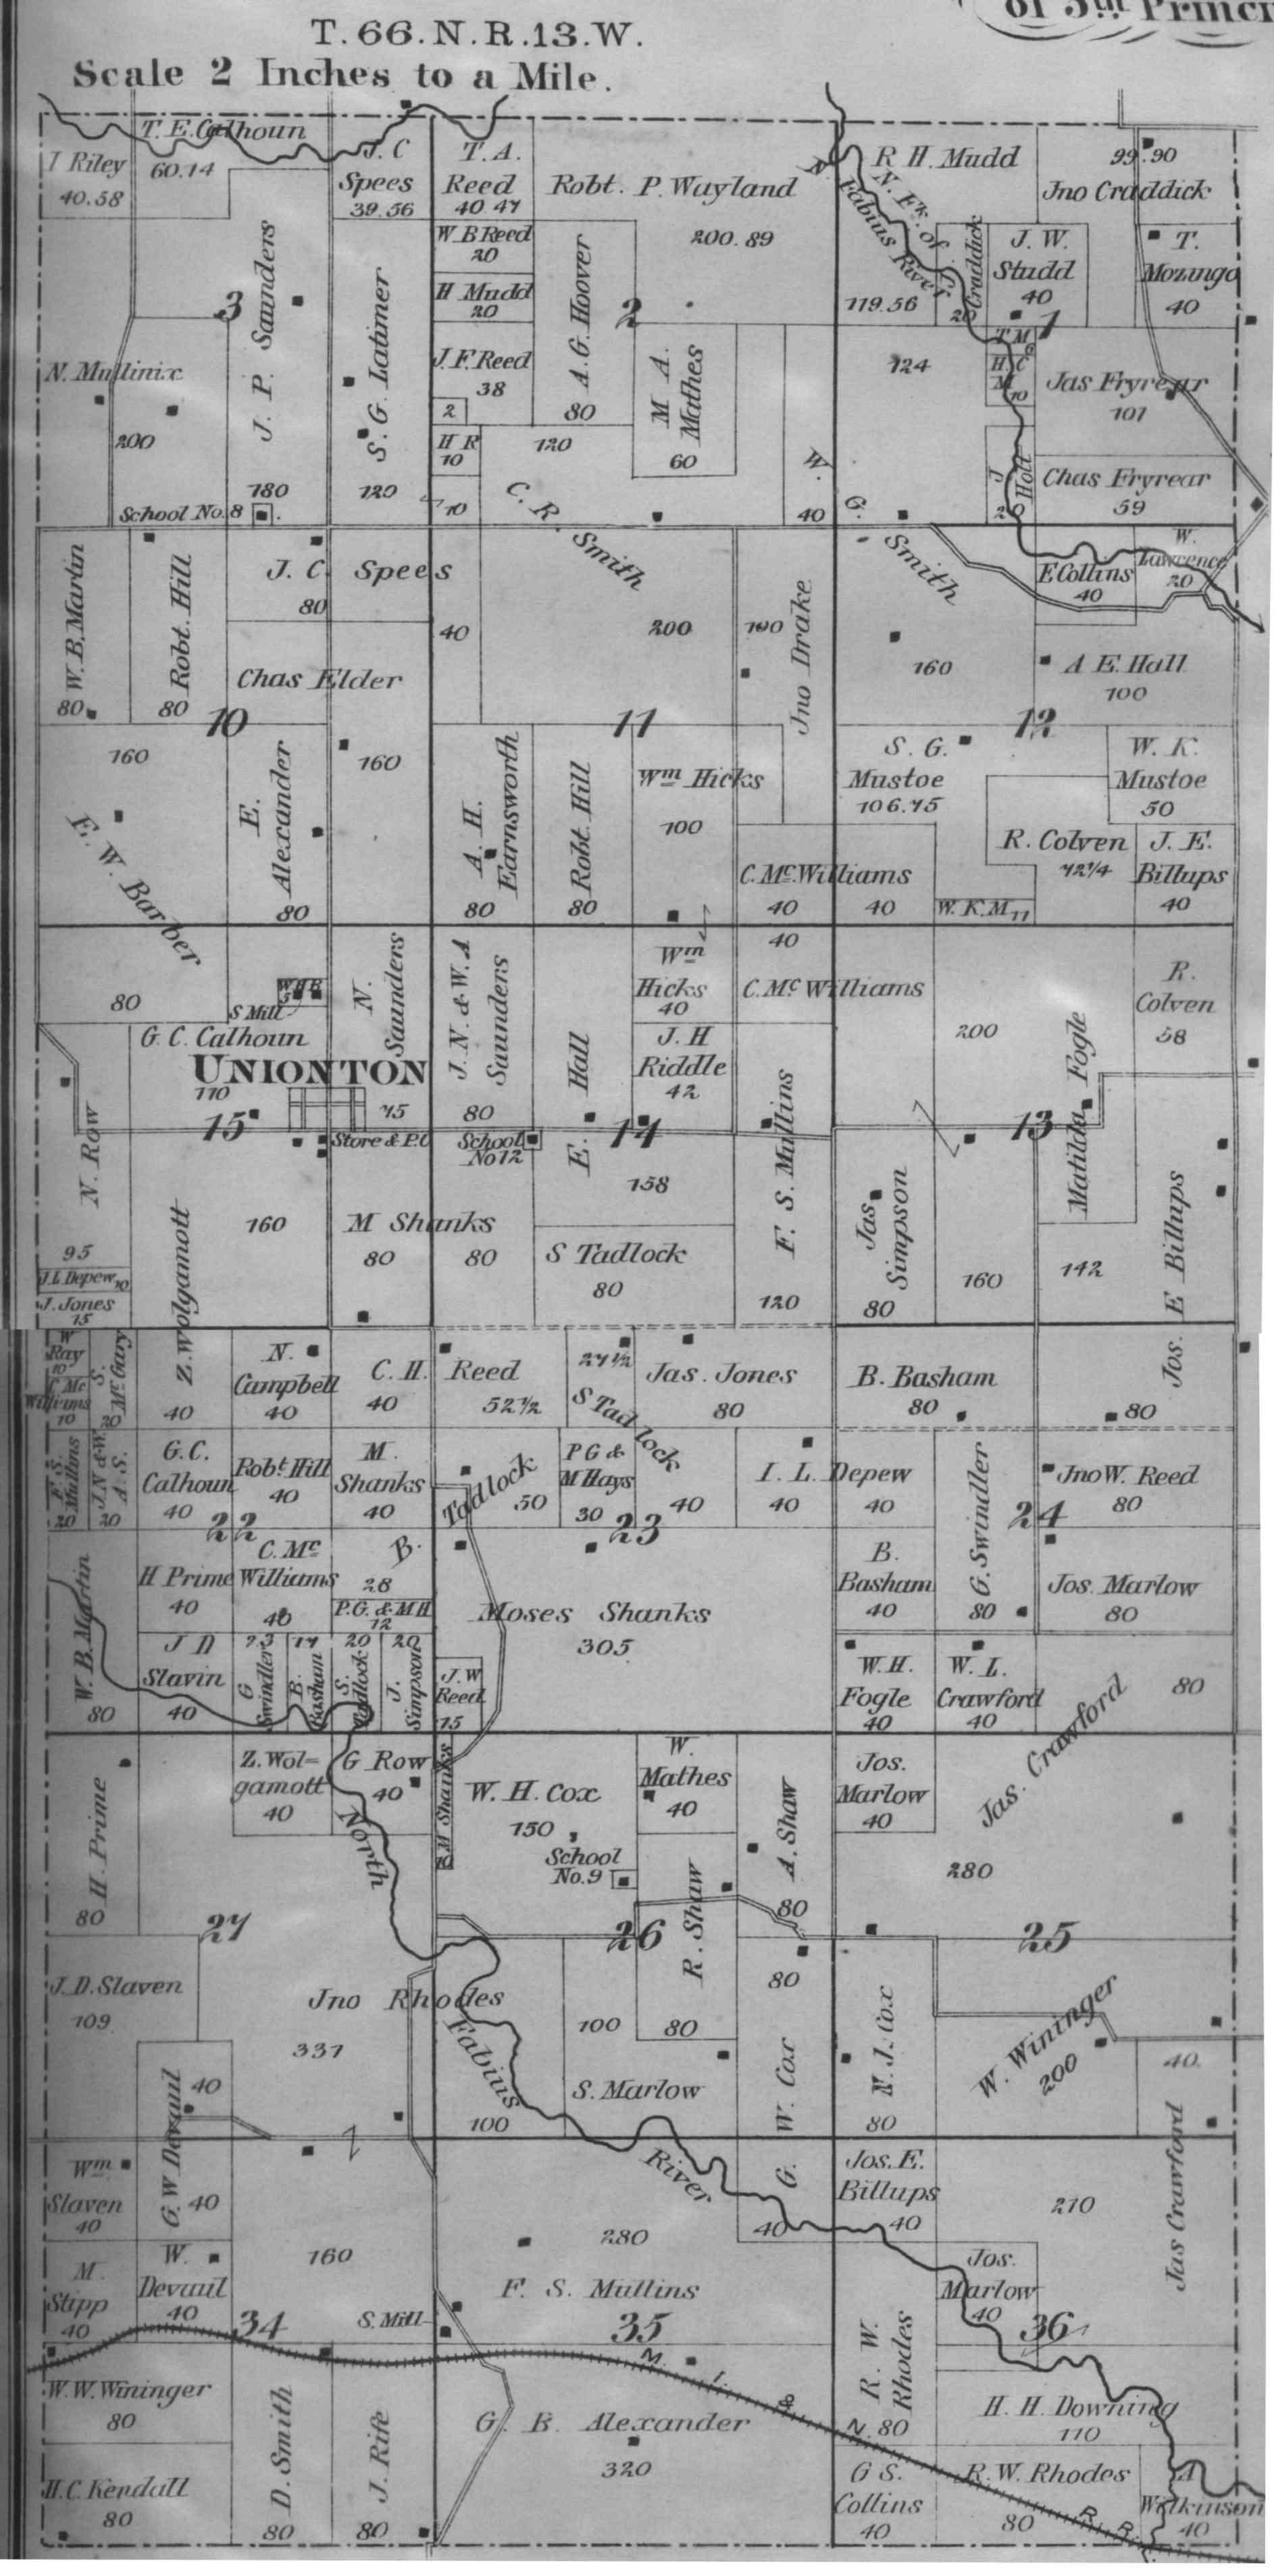 of 5th Princi
T. 66. N. R. 13. W.
Scale 2 Inches to a Mile.
T. E. Calhoun
60.14
I Riley
40.58
J. C
Spees
39.56
T. A.
Reed
40 47
Robt. P. Wayland
200.89
R H. Mudd
119.56
N. Fk. of
N. Fabius River
99.90
Jno Craddick
W B Reed
20
H Mudd
20
A. G. Hoover
80
Craddick
20
J. W.
Studd
40
T.
Mozingo
40
3
J. P. Saunders
180
S. G. Latimer
120
2
1
N. Mullinix
200
J. F. Reed
38
2
M A
Mathes
60
124
T M
6
H C
M 10
Jas Fryrear
101
H R
10
120
10
C. R. Smith
W. G. Smith
40
J Holt
20
Chas Fryrear
59
School No. 8
W. B. Martin
80
Robt. Hill
80
J. C. Spees
80
40
200
100
Jno Drake
160
E Collins
40
W.
Lawrence
20
Chas Elder
160
A E. Hall
100
10
11
12
160
E. W. Barber
E.
Alexander
80
A. H.
Earnsworth
80
Robt. Hill
80
Wm Hicks
100
S. G.
Mustoe
106.75
W. K.
Mustoe
50
R. Colven
72 1/4
J. E.
Billups
40
C. Mc Williams
40
40
W. K. M 11
80
W H B
5
S Mill
N.
Saunders
75
J. N. & W. A
Saunders
80
Wm
Hicks
40
40
C. Mc Williams
200
R.
Colven
58
G. C. Calhoun
110
UNIONTON
E. Hall
158
J. H
Riddle
42
F. S. Mullins
120
Matilda Fogle
142
15
14
13
N. Row
95
Store & P.O
School
No 12
160
M Shanks
80
80
S Tadlock
80
Jas
Simpson
80
160
Jos. E Billups
J. L. Depew 10
J. Jones
15
Z. Wolgamott
40
W
Ray
10
C Mc
Williams
10
S.
Mc Gary
20
N.
Campbell
40
C. H. Reed
40
52 1/2
27 1/2
S Tadlock
40
Jas. Jones
80
B. Basham
80
80
F. S.
Mullins
20
J. N & W.
A. S.
20
G. C.
Calhoun
40
Robt. Hill
40
M.
Shanks
40
B. Tadlock
50
28
P G &
M Hays
30
I. L. Depew
40
40
G. Swindler
80
Jno W. Reed
80
22
23
24
W. B. Martin
80
H Prime
40
C. Mc
Williams
40
P. G. & M H
12
Moses Shanks
305
B.
Basham
40
Jos. Marlow
80
J D
Slavin
40
23
G
Swindler
17
B.
Basham
20
S.
Tadlock
20
J.
Simpson
J. W
Reed
15
W. H.
Fogle
40
W. L.
Crawford
40
80
Jas. Crawford
280
H. Prime
80
Z. Wol-
gamott
40
G Row
40
M Shanks
10
W. H. Cox
150
School
No. 9
W.
Mathes
40
A. Shaw
80
Jos.
Marlow
40
North
Fabius
River
27
26
25
R. Shaw
80
J. D. Slaven
109
Jno Rhodes
337
100
100
S. Marlow
80
G. W. Cox
40
N. J. Cox
80
W. Wininger
200
40
G. W Devaul
40
40
Wm
Slaven
40
Jos. E.
Billups
40
210
Jas Crawford
M.
Stipp
40
W.
Devaul
40
160
S. Mill
280
F. S. Mullins
Jos.
Marlow
40
34
35
36
R. W.
Rhodes
80
W. W. Wininger
80
D. Smith
80
J. Rife
80
G. B. Alexander
320
M. I. & N. R. R.
H. H. Downing
110
H. C. Kendall
80
G S.
Collins
40
R. W. Rhodes
80
Wilkinson
40